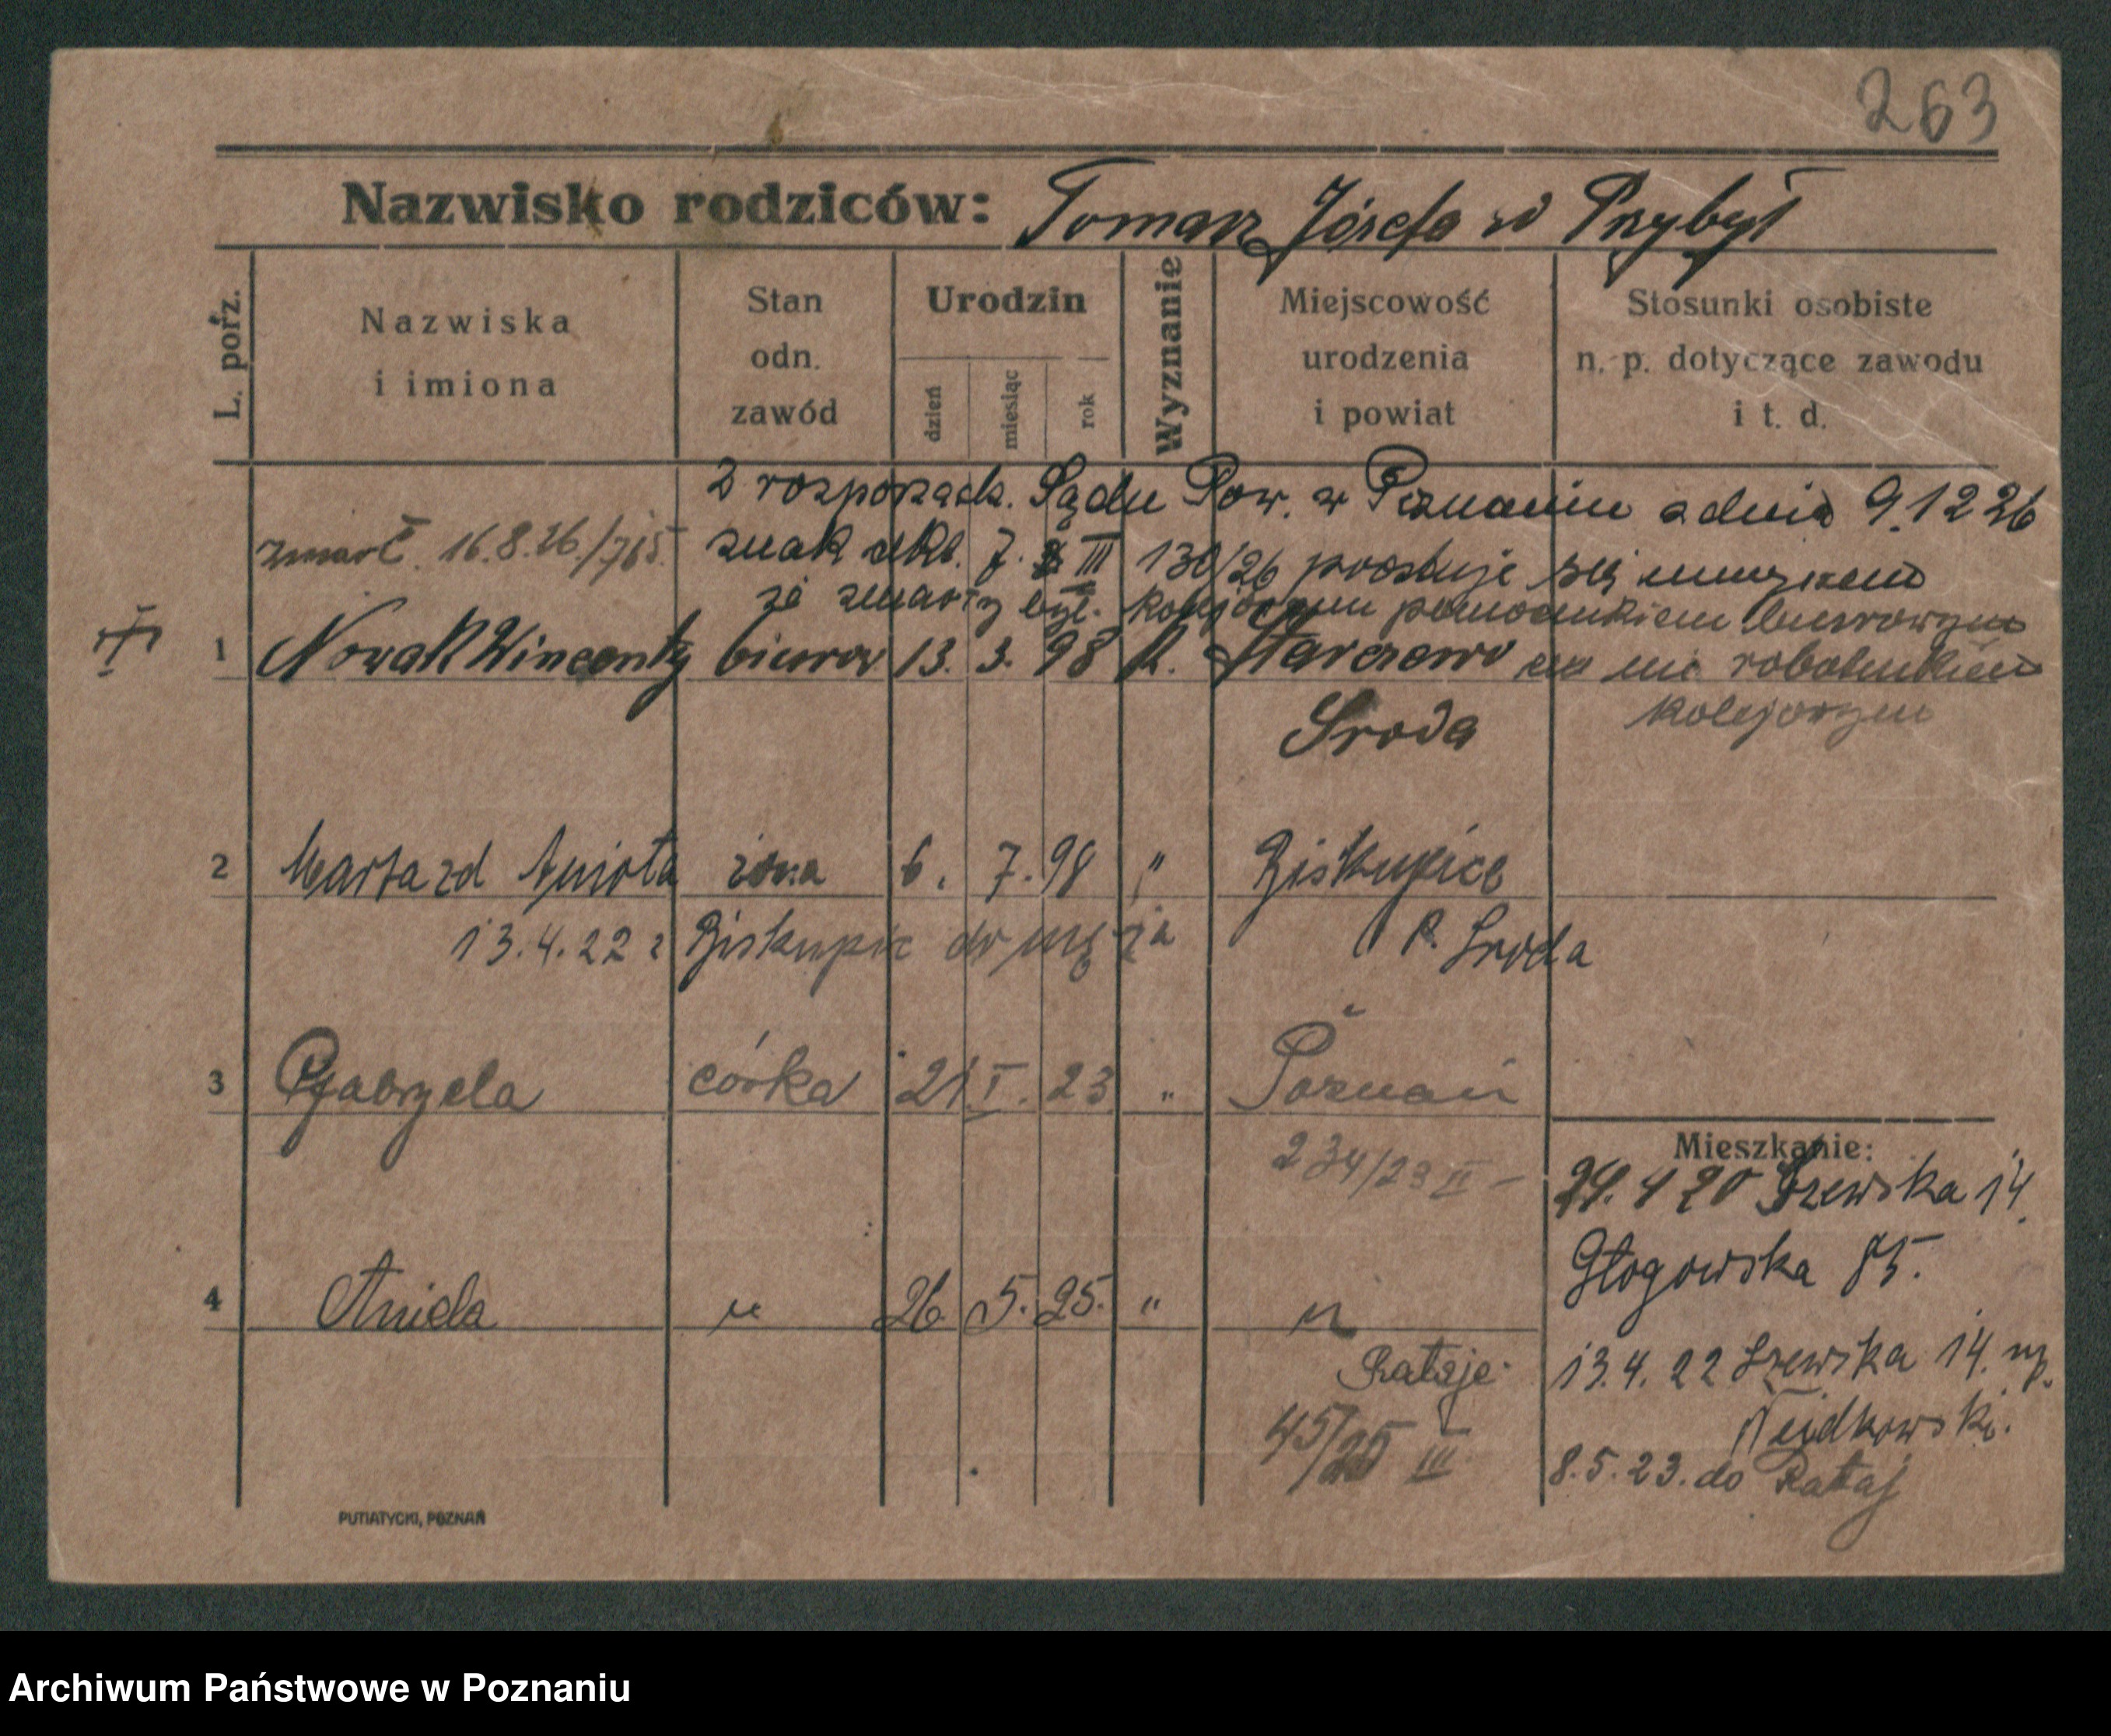 263
Nazwisko rodziców: Tomasz Józefa zd Przybył
L. porz.
Nazwiska i imiona
Stan odn. zawód
Urodzin
dzień miesiąc rok
Wyznanie
Miejscowość urodzenia i powiat
Stosunki osobiste n. p. dotyczące zawodu i t. d.
Z rozporządz. Sądu Pow. w Poznaniu z dnia 9.12 26
zmarł. 16.8.26./765. znak akt. 7. III 130/26 prostuje się
że zmarły był. kolejowym pomocnikiem biurowym
1 Nowak Wincenty biurow 13. 3. 98 k. Starczewo a nie robotnikiem
Sroda kolejowym
2 Marta zd Anioła żona 6. 7. 98 " Biskupice
13.4.22 z Biskupic do męża P. Sroda
3 Gabryela córka 21 I. 23 " Poznań
234/23 II -
Mieszkanie:
29. 4 20 Szewska 14.
Głogowska 85.
4 Aniela " 26. 5. 25. " "
Rataje
13.4.22 Szewska 14. np.
45/25 III
8.5.23. do Rataj
PUTIATYCKI, POZNAŃ
Archiwum Państwowe w Poznaniu